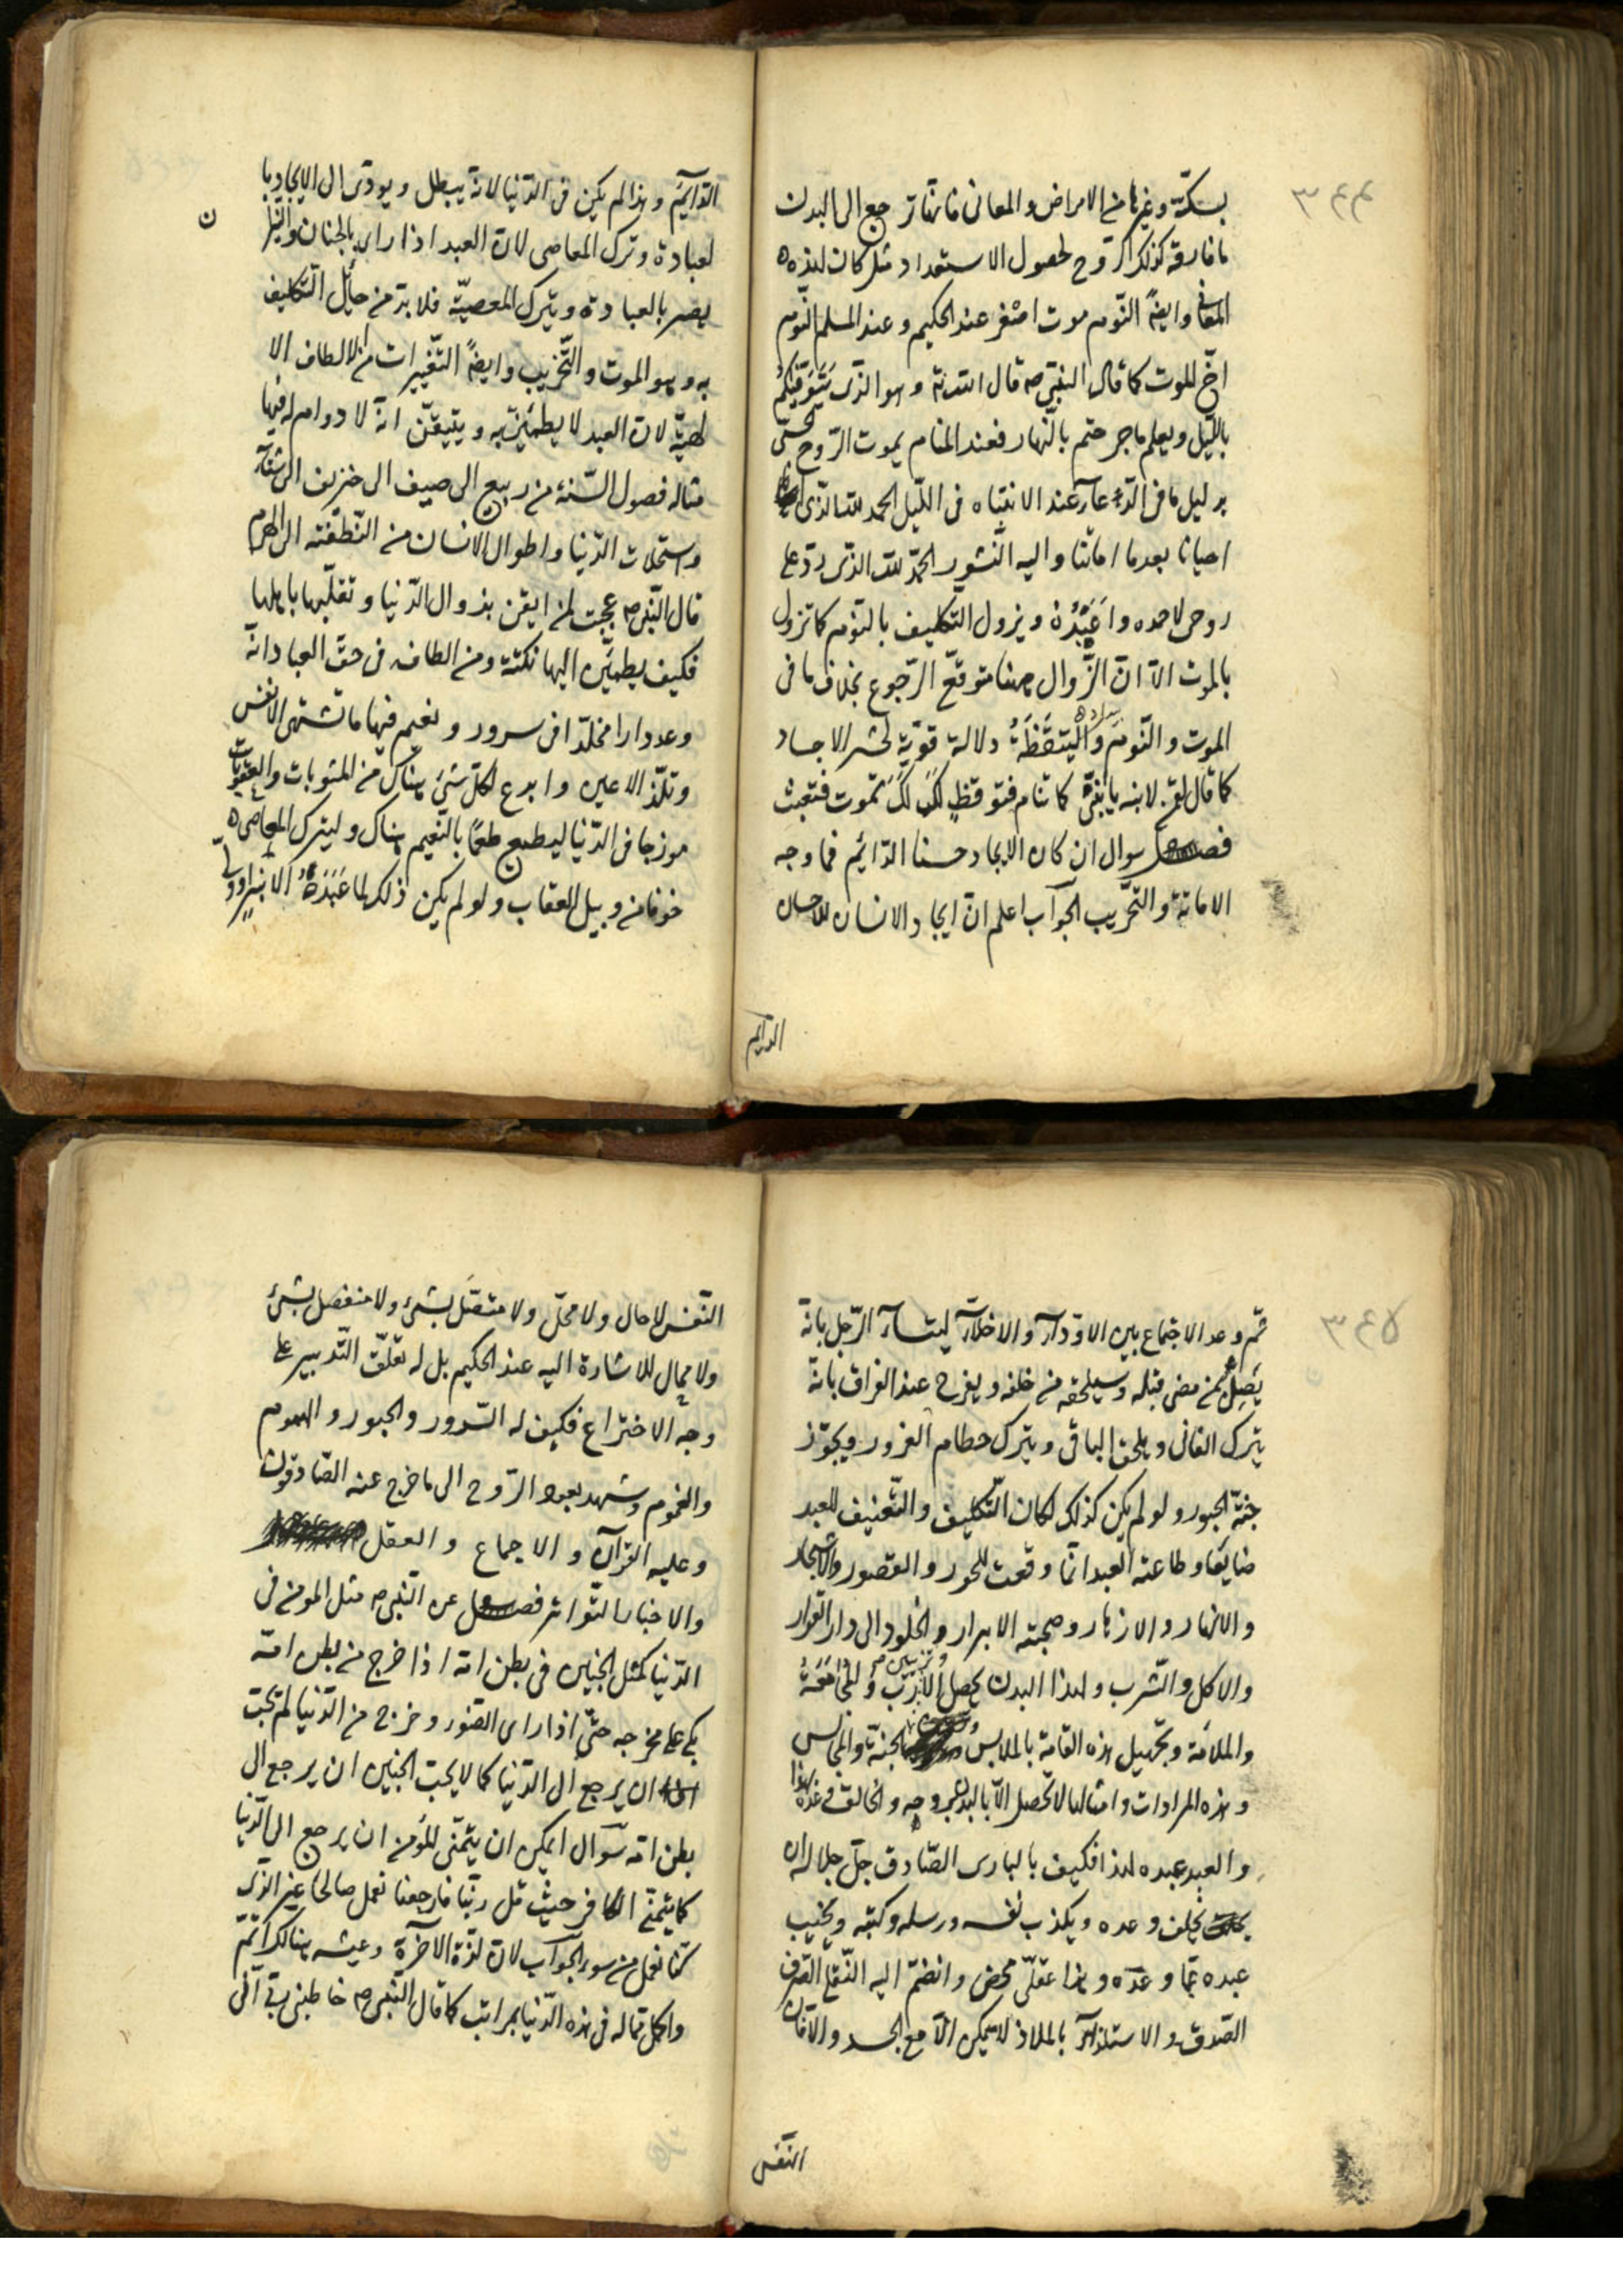 ٣٤٤
بسكتة وغيرها من الامراض والمعانى فانها ترجع الى البدن
ما فارقه كذلك الروح لحصول الاستعداد مثل كان لهذه
المعانى وايضاً النوم موت اصغر عند الحكيم وعند المسلم النوم
اخ للموت كما قال النبى ص قال الله تع وهو الذى يتوفيكم
بالليل ويعلم ما جرحتم بالنهار فعند المنام يموت الروح
بدليل ما فى الدعآء عند الانتباه فى الليل الحمد لله الذى
احيانا بعدما اماتنا واليه النشور الحمد لله الذى رد على
روحى لاحمده واعبده ويزول التكليف بالنوم كما تزول
بالموت الا ان الزوال ههنا متوقع الرجوع بخلاف ما فى
الموت والنوم واليتقظة دلالة قوية لحشر الاجساد
كما قال لابنه يا بنى كما تنام فتوقظ كذلك تموت فتبعث
فصل سوال ان كان الايجاد حسنا الدائم فما وجه
الاماتة والتخريب الجواب اعلم ان ايجاد الانسان للاحسان
الدايم
الدائم وهذا لم يكن فى الدنيا لانه يبطل ويودى الى الايجاد بها
لعبادة وترك المعاصى لان العبد اذا راى بالجنان والنيران
يصر بالعبادة ويترك المعصية فلا بد من حايل التكليف
به وهو الموت والتخريب وايضاً التغييرات من الالطاف الا
لهية لان العبد لا يطمئن به ويتيقن انه لا دوام له فيها
مثاله فصول السنة من ربيع الى صيف الى خريف الى شتآء
واستحلات الدنيا واطوال الانسان من النطفة الى الهرم
قال النبى ص عجبت لمن ايقن بزوال الدنيا وتقلبها باهلها
فكيف يطمئن اليها نكتة ومن الطافه فى حق العباد انه
وعد دارا مخلدا فى سرور ونعيم فيها ما تشتهى الانفس
وتلذ الاعين وابدع لكل شئ هناك من المثوبات والعقوبات
موزجا فى الدنيا ليطمع طمعًا بالنعيم هناك وليترك المعاصى
خوفا من وبيل العقاب ولو لم يكن ذلك لما عبده الا
٣٤٥
ثم وعد الاجتماع بين الاودآء والاخلآء ليتسآء الرجل بانه
يصل لمن مضى قبله وسيلحقه من خلفه ويفرح عند الفراق بانه
يترك الفانى ويلحق الباقى ويترك حطام الغرور ويجوز
جنة الحبور ولو لم يكن كذلك لكان التكليف والتعنيف للعبد
ضايعا وطاعة العبد انما وقعت للحور والقصور والاشجار
والانهار والازهار وصحبة الابرار والخلود الى دار القرار
والاكل والشرب ولهذا البدن يحصل الادب والمجامعة
والملامة وتجميل هذه القامة بالملابس الجنة والمجالس
وهذه المرادات وامثالها لا تحصل الا بالبدن بروحه والخالق وعد بهذا
والعبد عبده لهذا فكيف بالبارى الصادق جل جلاله ان
يخلف وعده ويكذب نفسه ورسله وكتبه ويخيب
عبده بما وعده وهذا عقلى محض وانضم اليه النقل الصرف
الصدق والاستلذاذ بالملاذ لا يمكن الا مع الجسد والا فان
النفس
النفس لا حال ولا محل ولا متصل بشئ ولا منفصل بشئ
ولا مجال للاشارة اليه عند الحكيم بل له تعلق التدبير على
وجه الاختراع فكيف له السرور والحبور والهموم
والغموم وشهد بعود الروح الى ما خرج عنه الصادقون
وعليه القرآن والاجماع والعقل
والاخبار التواتر فصل عن النبى ص مثل المومن فى
الدنيا كمثل الجنين فى بطن امه اذا خرج من بطن امه
بكى على مخرجه حتى اذا راى الضور وخرج من الدنيا لم يحب
ان يرجع الى الدنيا كما لا يحب الجنين ان يرجع الى
بطن امه سوال ايمكن ان يتمنى المؤمن ان يرجع الى الدنيا
كما يتمنى الكافر حيث قل ربنا فارجعنا نعمل صالحا غير الذى
كنا نعمل من سوء الجواب لان لذة الآخرة وعيشه هنالك اتم
واكمل مما له فى هذه الدنيا بمراتب كما قال النبى ص خاطبنى ربى انى